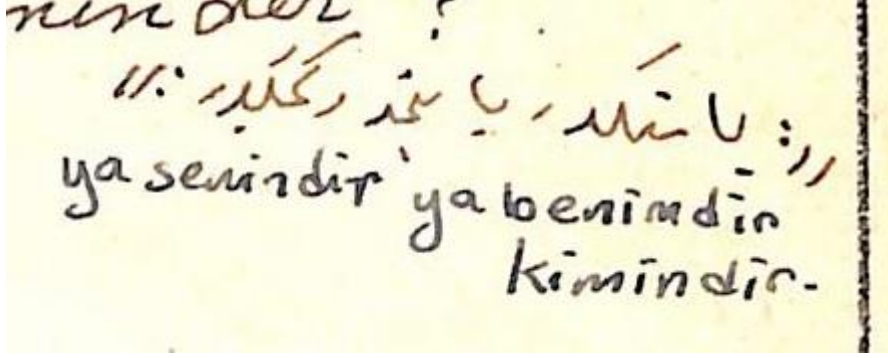 „: یا سنكدر، یا بنمدر، كمكدر :"
ya senindir ya benimdir
kimindir.